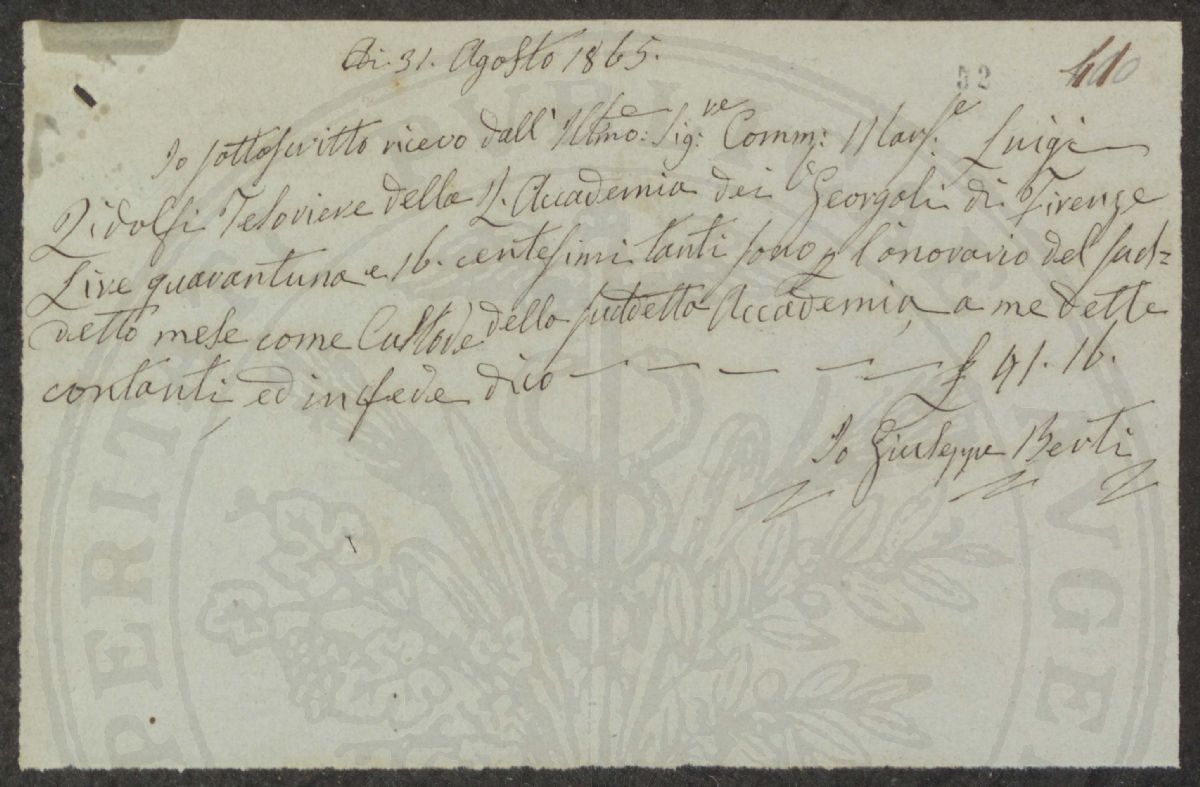 Adi. 31. Agosto 1865.
52
Io sottoscritto ricevo dall' Illmo: Sig:re Comm: Marse: Luigi
Ridolfi Tesoriere della R. Accademia dei Georgofili di Firenze
Lire quarantuna e 16. centesimi tanti sono p l'onorario del sud=
detto mese come Custode della suddetta Accademia, a me dette
contanti, ed in fede dico — — — — — £ 41. 16.
Io Giuseppe Berti